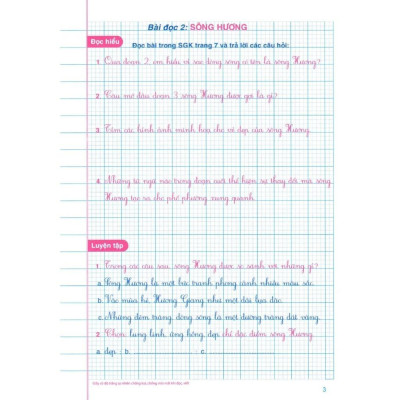 Bài đọc 2: SÔNG HƯƠNG
Đọc hiểu
Đọc bài trong SGK trang 7 và trả lời các câu hỏi:
1. Qua đoạn 2, em hiểu vì sao dòng sông có tên là sông Hương?
2. Câu mở đầu đoạn 3 sông Hương được gọi là gì?
3. Tìm các hình ảnh minh họa cho vẻ đẹp của sông Hương.
4. Những từ ngữ nào trong đoạn cuối thể hiện sự thay đổi mà sông
Hương tạo ra cho phố phường xung quanh.
Luyện tập
1. Trong các câu sau, sông Hương được so sánh với những gì?
a. Sông Hương là một bức tranh phong cảnh nhiều màu sắc.
b. Vào mùa hè, Hương Giang như một dải lụa đào.
c. Những đêm trăng, dòng sông là một đường trăng dát vàng.
2. Chọn: lung linh, ửng hồng, đẹp chỉ đặc điểm sông Hương.
a. đẹp ; b. ; c.
3